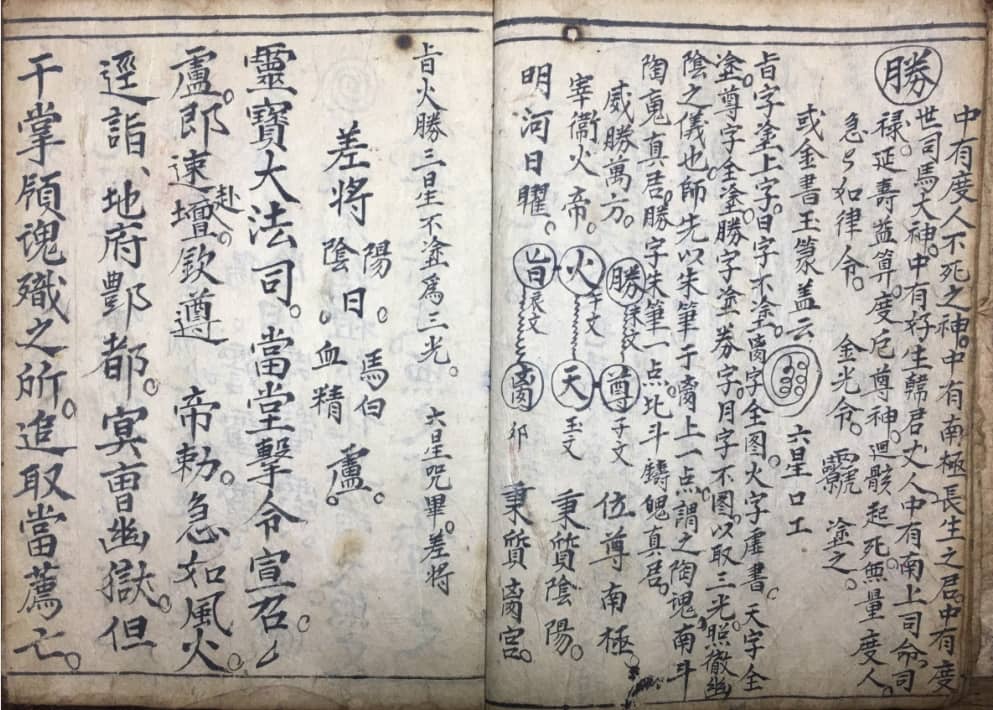 勝
中有度人不死之神。中有南極長生之君。中有度
世司馬大神。中有好生韓君丈人。中有南上司命。司
祿。延壽益算。度厄尊神。迴骸起死。無量度人。
急急如律令。 金光令。 塗之。
或金書玉篆盖云 六星口工
旨字塗上字。日字不塗。全图。火字虚書。天字全
塗。尊字全塗。勝字塗券字。月字不图。以取三光。照徹幽
陰之儀也。師先以朱筆于 上一点。謂之陶魂。南斗
陶魂真君。勝字朱筆一点。北斗鑄魄真君。
威勝萬方。 勝 未文 尊 子文 位尊南極。
宰衛火帝。 火 午文 天 玉文 秉質陰陽。
明河日曜。 旨 辰文 卯 秉質 宫。
旨火勝三星不塗為三光。 六星咒畢。差将
差将 陽。 陰日。 馬伯 血精 盧。
靈寶大法司。當堂擊令宣召。
盧。郎速赴壇。欽遵 帝勅。急如風火。
逕詣、地府酆都。冥曹幽獄。但
干掌領魂職之所。追取當薦亡。